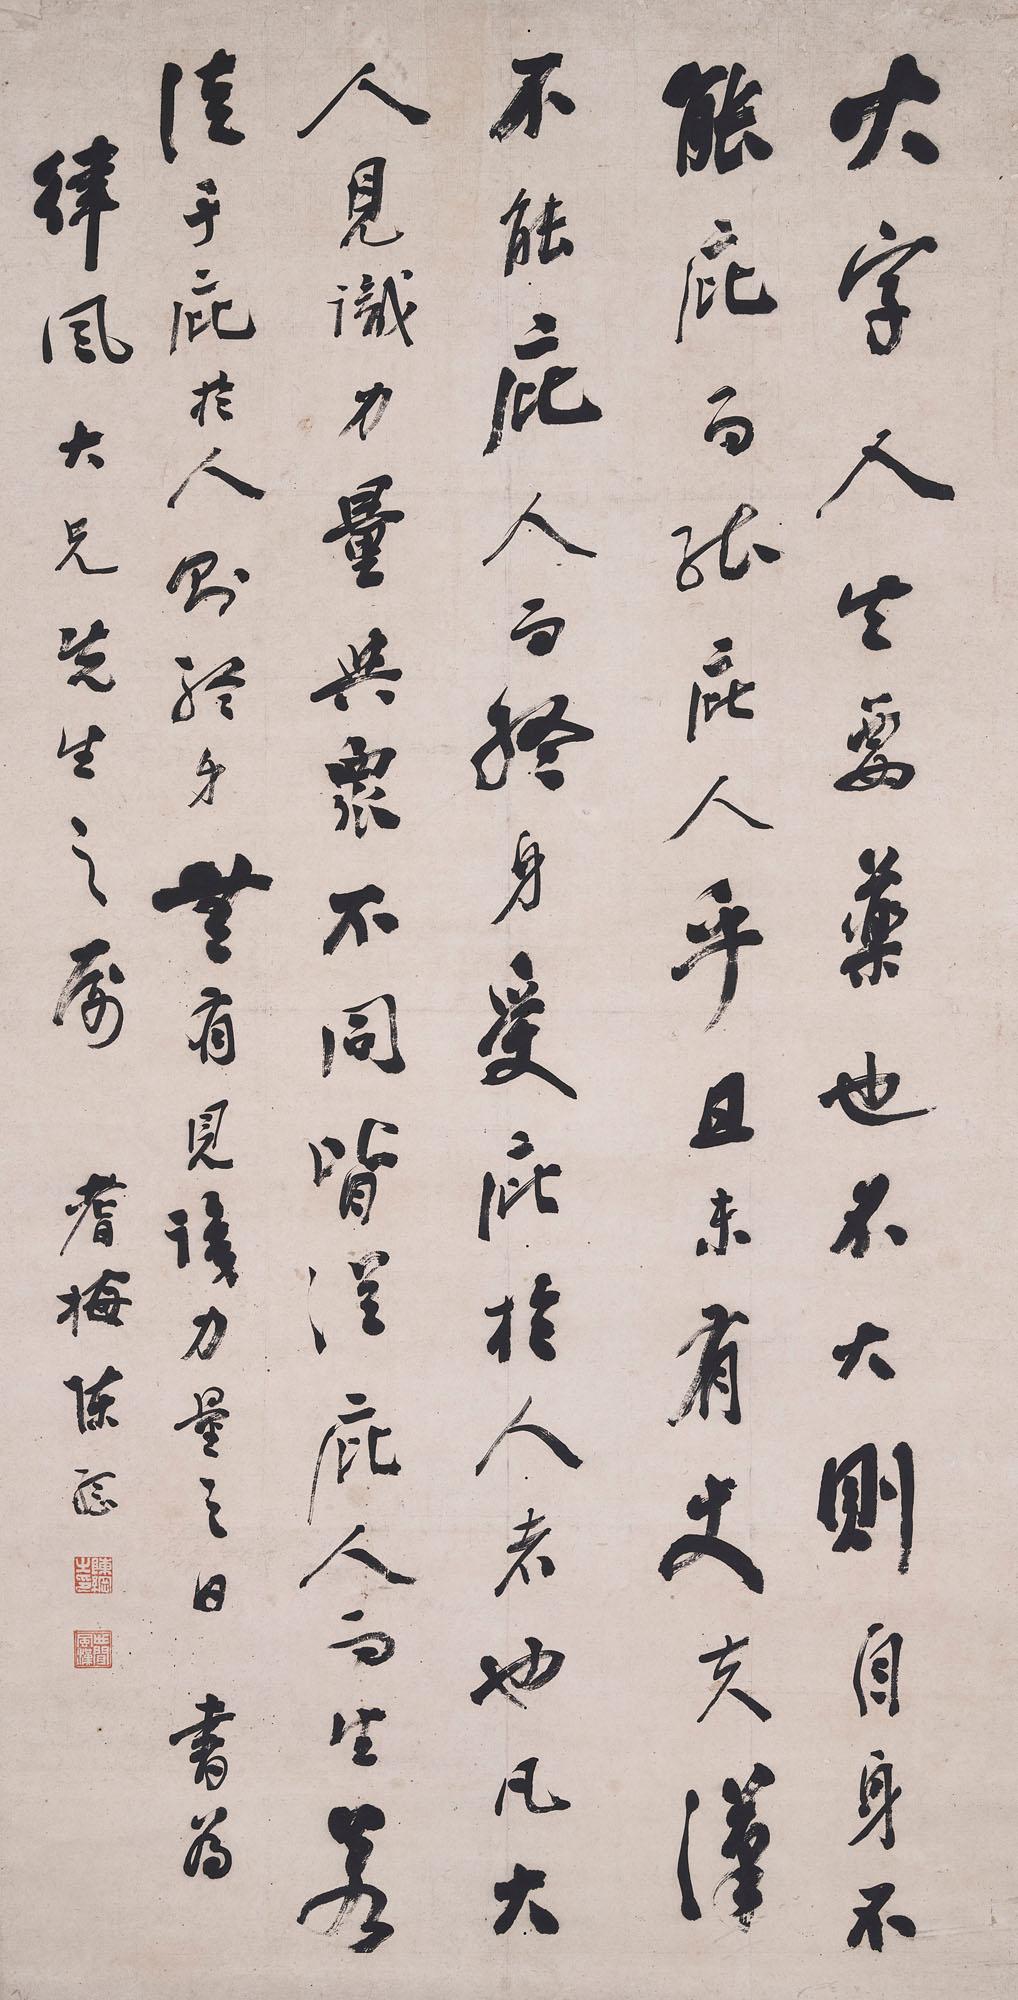 大字人生要藥也不大則自身不
能庇而能庇人乎且未有丈夫漢
不能庇人而終身受庇於人者也凡大
人見識力量與眾不同皆從庇人而生若
徒事庇於人則終身無有見識力量之日 書為
律風大兄先生之屬 耆梅陳